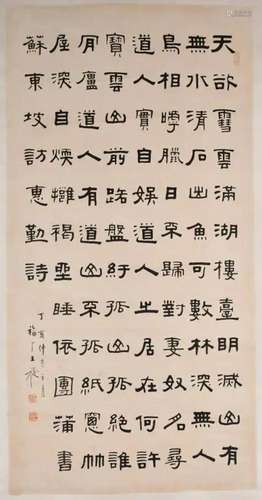 天欲雪雲滿湖樓臺明滅山有
無水清石出魚可數林深無人
鳥相嘑臘日不歸對妻奴名尋
道人實自娛道人之居在何許
寶雲山前路盤紆孤山孤絕誰
肎廬道人有道山不孤紙窻竹
屋深自煖擁褐坐睡依團蒲書
蘇東坡訪惠勤詩
丁亥仲
福厂王禔